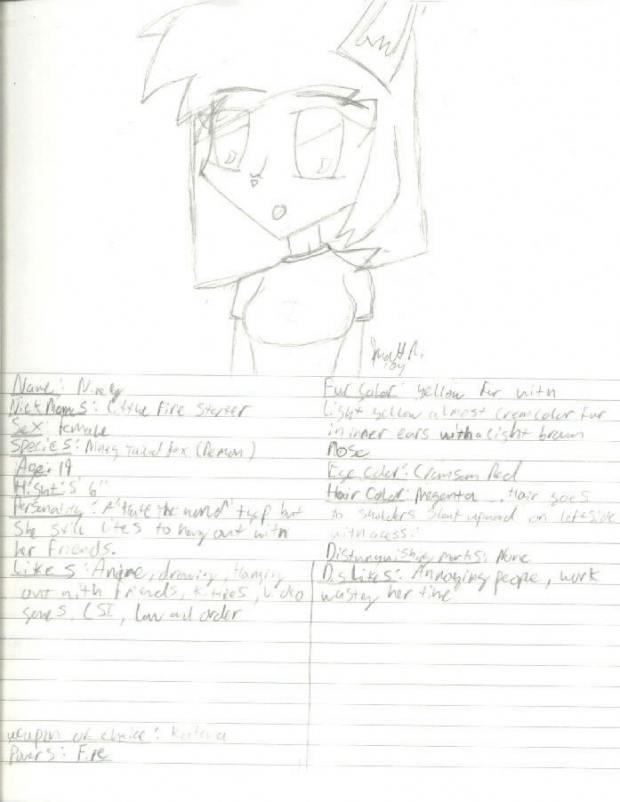 Name: Ninety
NickNames: Little Fire Starter
Sex: female
Species: Nineg Tailed fox (Demon)
Age: 19
Hight: 5' 6"
Personality: A "hate the world" type but
She still likes to hang out with
her friends.
Likes: Anime, drawing, Hanging
out with friends, Kitties, Video
games, CSI, Law and order
weapon of choice: Katana
Powers: Fire
Fur Color: yellow fur with
light yellow almost crem color fur
in inner ears with a light brown
Nose
Eye Color: Crimson Red
Hair Color: Magenta .. Hair goes
to sholders slant upward on left side
Distinguishing marks: None
Dislikes: Annoying people, work
wasting her time